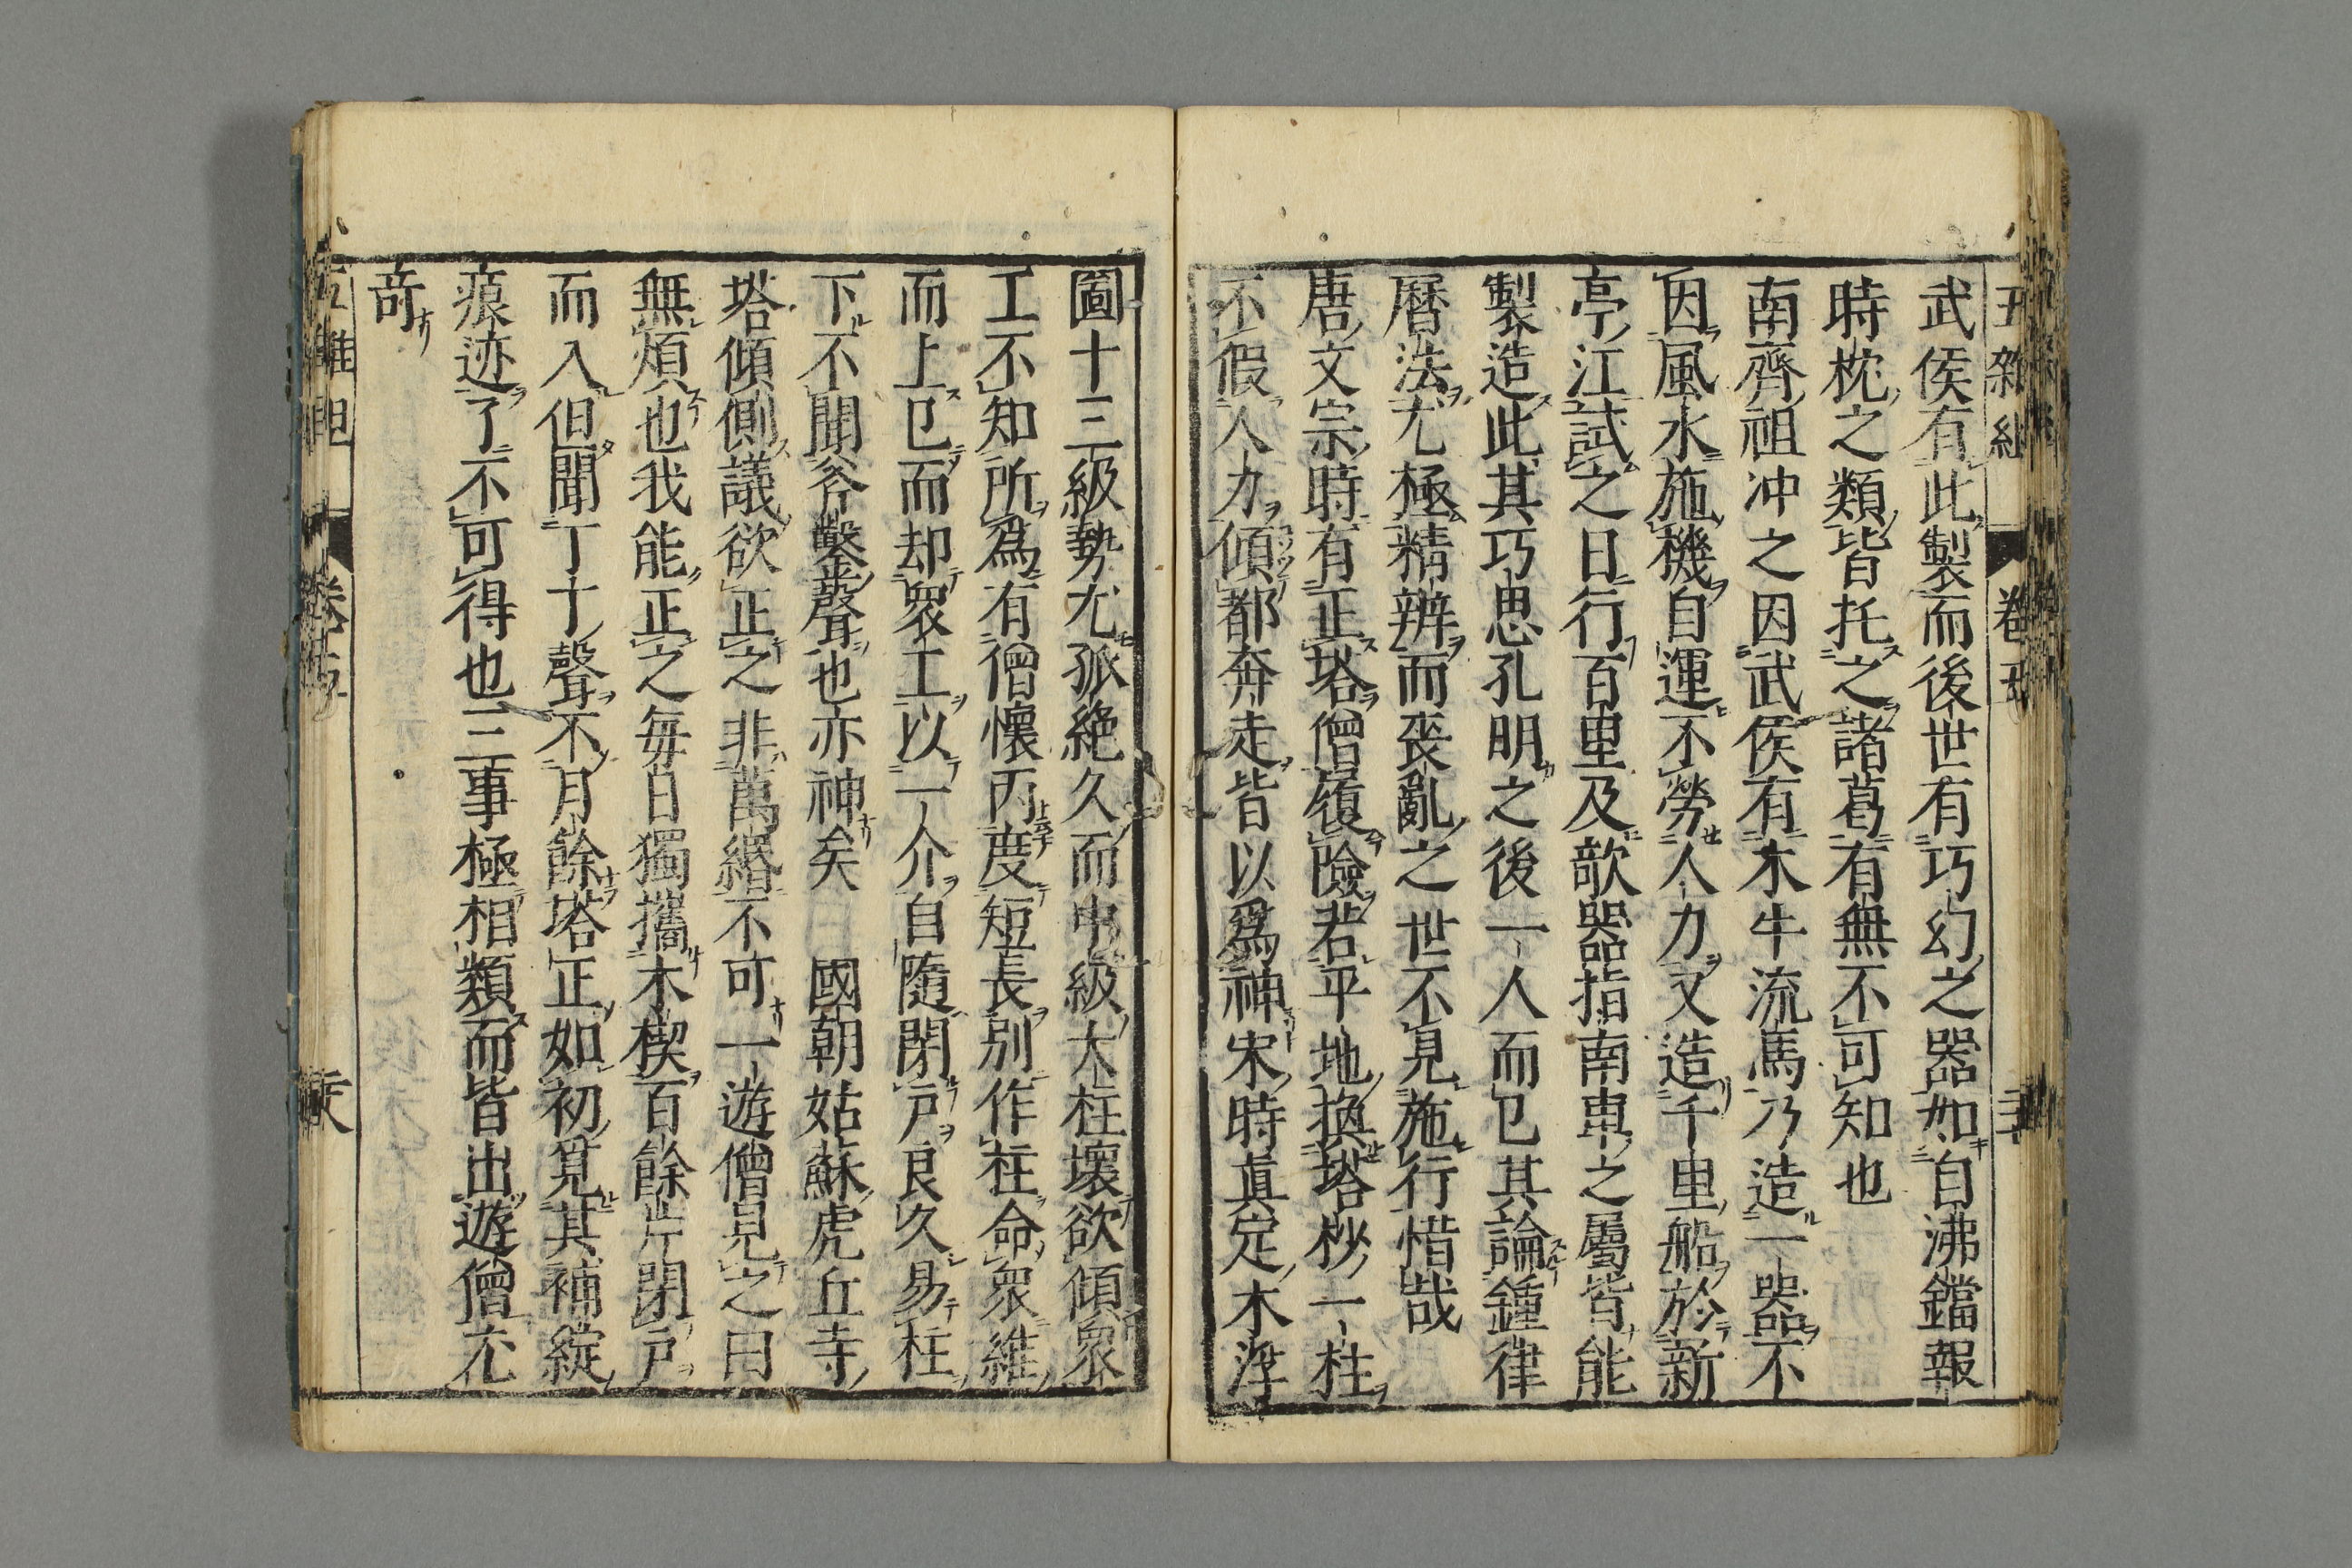 五雜組 卷五
武侯有此製而後世有巧幻之器如自沸鐺報
時枕之類皆托之諸葛有無不可知也
南齊祖冲之因武侯有木牛流馬乃造一器不
因風水施機自運不勞人力又造千里船於新
亭江試之日行百里及欹器指南車之屬皆能
製造此其巧思孔明之後一人而已其論鍾律
曆法尤極精辨而喪亂之世不見施行惜哉
唐文宗時有正塔僧履險若平地換塔杪一柱
不假人力傾都奔走皆以爲神宋時真定木浮
圖十三級勢尤孤絶久而中級大柱壞欲傾衆
工不知所爲有僧懷丙度短長別作柱命衆維
而上已而却衆工以一介自隨閉戸良久易柱
下不聞斧鑿聲也亦神矣 國朝姑蘇虎丘寺
塔傾側議欲正之非萬緡不可一遊僧見之曰
無煩也我能正之毎日獨攜木楔百餘片閉戸
而入但聞丁丁聲不月餘塔正如初覓其補綻
痕迹了不可得也三事極相類而皆出遊僧尤
奇
卷五